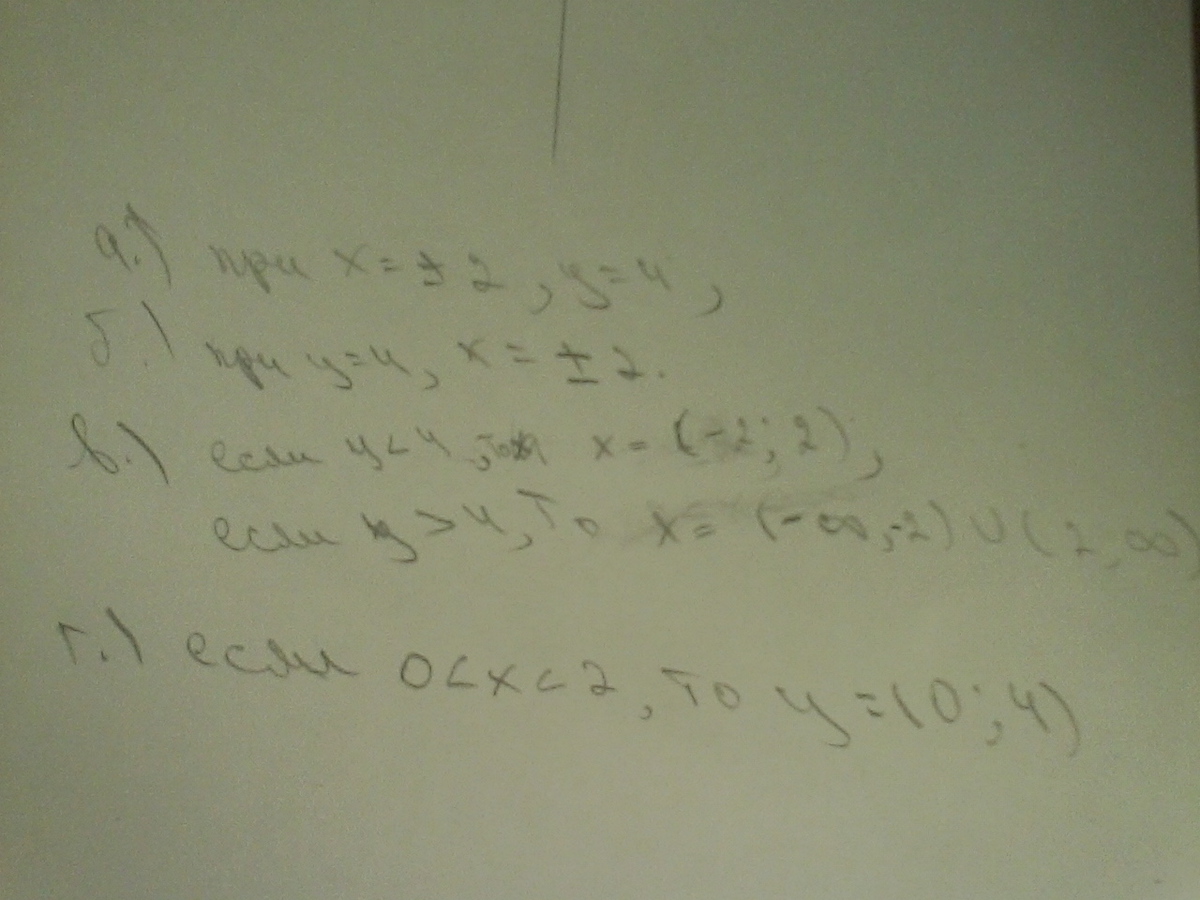 а.) при x = ± 2, y = 4,
б.) при y = 4, x = ± 2.
в.) если y < 4, x = (-2; 2),
если y > 4, то x = (-∞, -2) ∪ (2, ∞)
г.) если 0 < x < 2, то y = (0; 4)